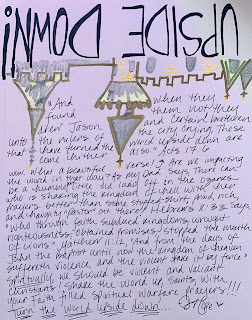 UPSIDE DOWN!
"And when they
found them not, they
drew Jason and certain brethren
unto the rulers of the city, crying, These
that have turned the world upside down are
come hither also." Acts 17:6
wow. What a beautiful verse! Are we impacting
the world in that way? As my Dad says, There can
be a humble, little old lady off in the
who is shaking the kingdom of hell with her
prayers more than some stuffed-shirt, rich,
and haughty "pastor" out there! Hebrews 11:33 says,
"Who through faith subdued kingdoms, wrought
righteousness, obtained promises, stopped the mouths
of lions." Matthew 11:12, "And from the days of
John the baptist until now the kingdom of heaven
suffereth violence, and the violent take it by force."
Spiritually, we should be violent and valiant
Christians! Shake the world up, saints, with
your faith filled spiritual warfare prayers!!!
Turn the world upside down...